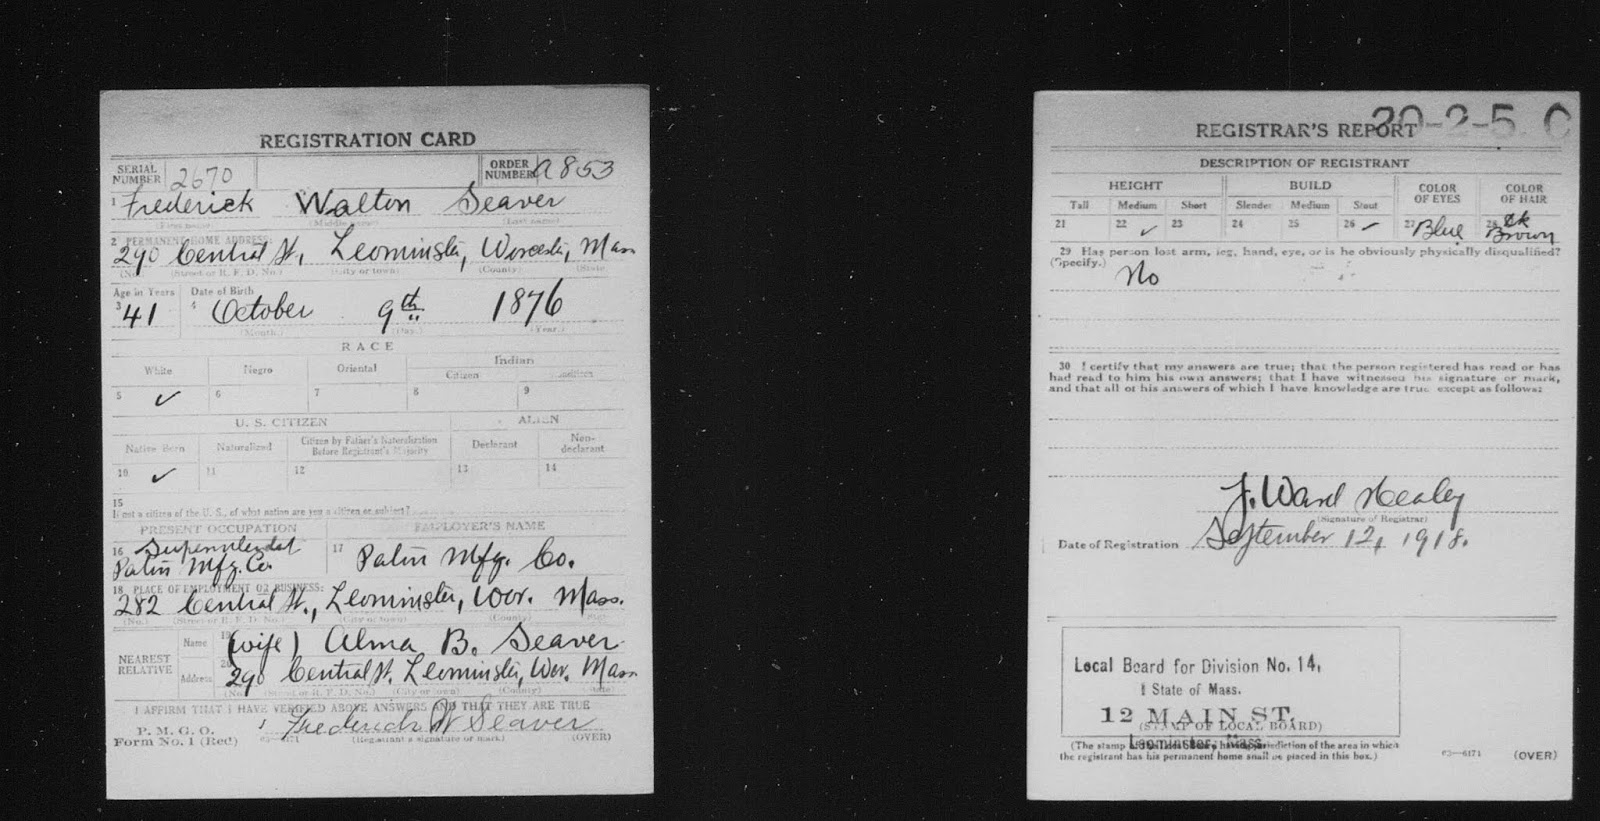 REGISTRATION CARD
SERIAL NUMBER 2670 ORDER NUMBER A853
1 Frederick Walton Seaver
(First name) (Middle name) (Last name)
2 PERMANENT HOME ADDRESS:
290 Central St., Leominster, Worcester, Mass
(No.) (Street or R. F. D. No.) (City or town) (County) (State)
Age in Years Date of Birth
3 41 4 October 9th 1876
(Month.) (Day.) (Year.)
RACE
White Negro Oriental Indian
Citizen
5 ✓ 6 7 8 9
U. S. CITIZEN ALIEN
Native Born Naturalized Citizen by Father's Naturalization Before Registrant's Majority Declarant Non-declarant
10 ✓ 11 12 13 14
15
If not a citizen of the U. S., of what nation are you a citizen or subject?
PRESENT OCCUPATION EMPLOYER'S NAME
16 17
Patin Mfg. Co. Patin Mfg. Co.
18 PLACE OF EMPLOYMENT OR BUSINESS:
282 Central St., Leominster, Wor. Mass.
(No.) (Street or R. F. D. No.) (City or town) (County)
NEAREST RELATIVE
Name 19 (wife) Alma B. Seaver
Address 20 290 Central St. Leominster, Wor. Mass
(No.) (Street or R. F. D. No.) (City or town) (County) (State)
I AFFIRM THAT I HAVE VERIFIED ABOVE ANSWERS AND THAT THEY ARE TRUE
P. M. G. O.
Form No. 1 (Red) Frederick W Seaver
(Registrant's signature or mark) (OVER)
REGISTRAR'S REPORT 20-2-5. C
DESCRIPTION OF REGISTRANT
HEIGHT BUILD COLOR OF EYES COLOR OF HAIR
Tall Medium Short Slender Medium Stout
21 22 ✓ 23 24 25 26 ✓ 27 Blue 28 dk Brown
29 Has person lost arm, leg, hand, eye, or is he obviously physically disqualified?
(Specify.) No
30 I certify that my answers are true; that the person registered has read or has
had read to him his own answers; that I have witnessed his signature or mark,
and that all of his answers of which I have knowledge are true except as follows:
J. Ward Healey
(Signature of Registrar)
Date of Registration September 12, 1918.
Local Board for Division No. 14,
State of Mass.
12 MAIN ST.
(STAMP OF LOCAL BOARD)
Leominster, Mass.
(The stamp of the Local Board having jurisdiction of the area in which
the registrant has his permanent home shall be placed in this box.)
03—6171 (OVER)